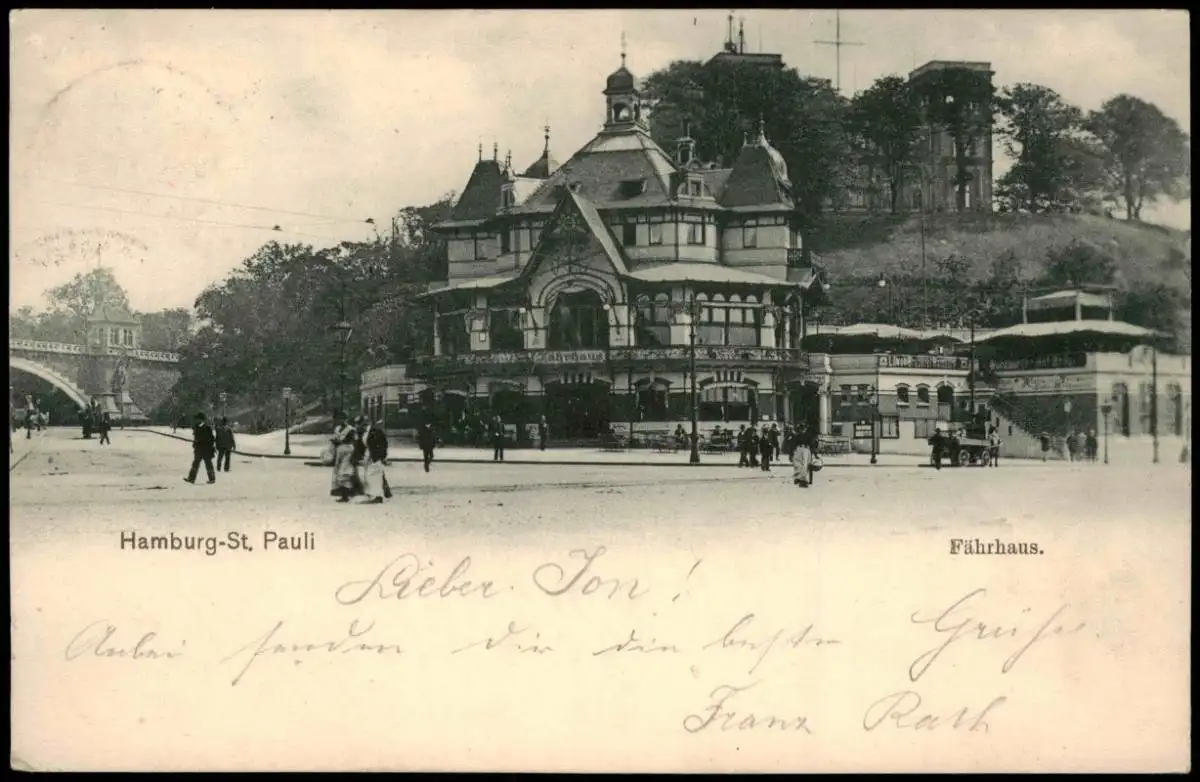 Fährhaus
Hamburg-St. Pauli
Fährhaus.
Lieber Jon!
Anbei senden Dir die besten Grüße.
Franz Rath